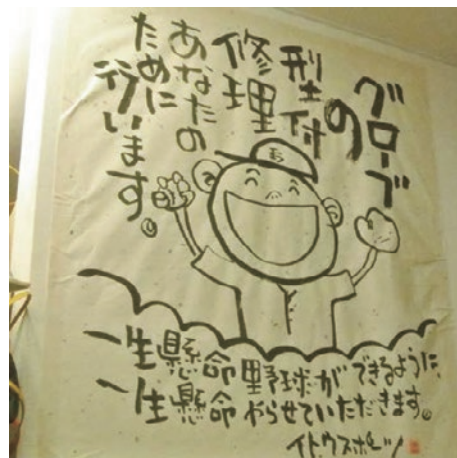 グローブ
の
型付
修理
あなたの
ために
行います。
一生懸命野球ができるように、
一生懸命やらせていただきます。
イトウスポーツ